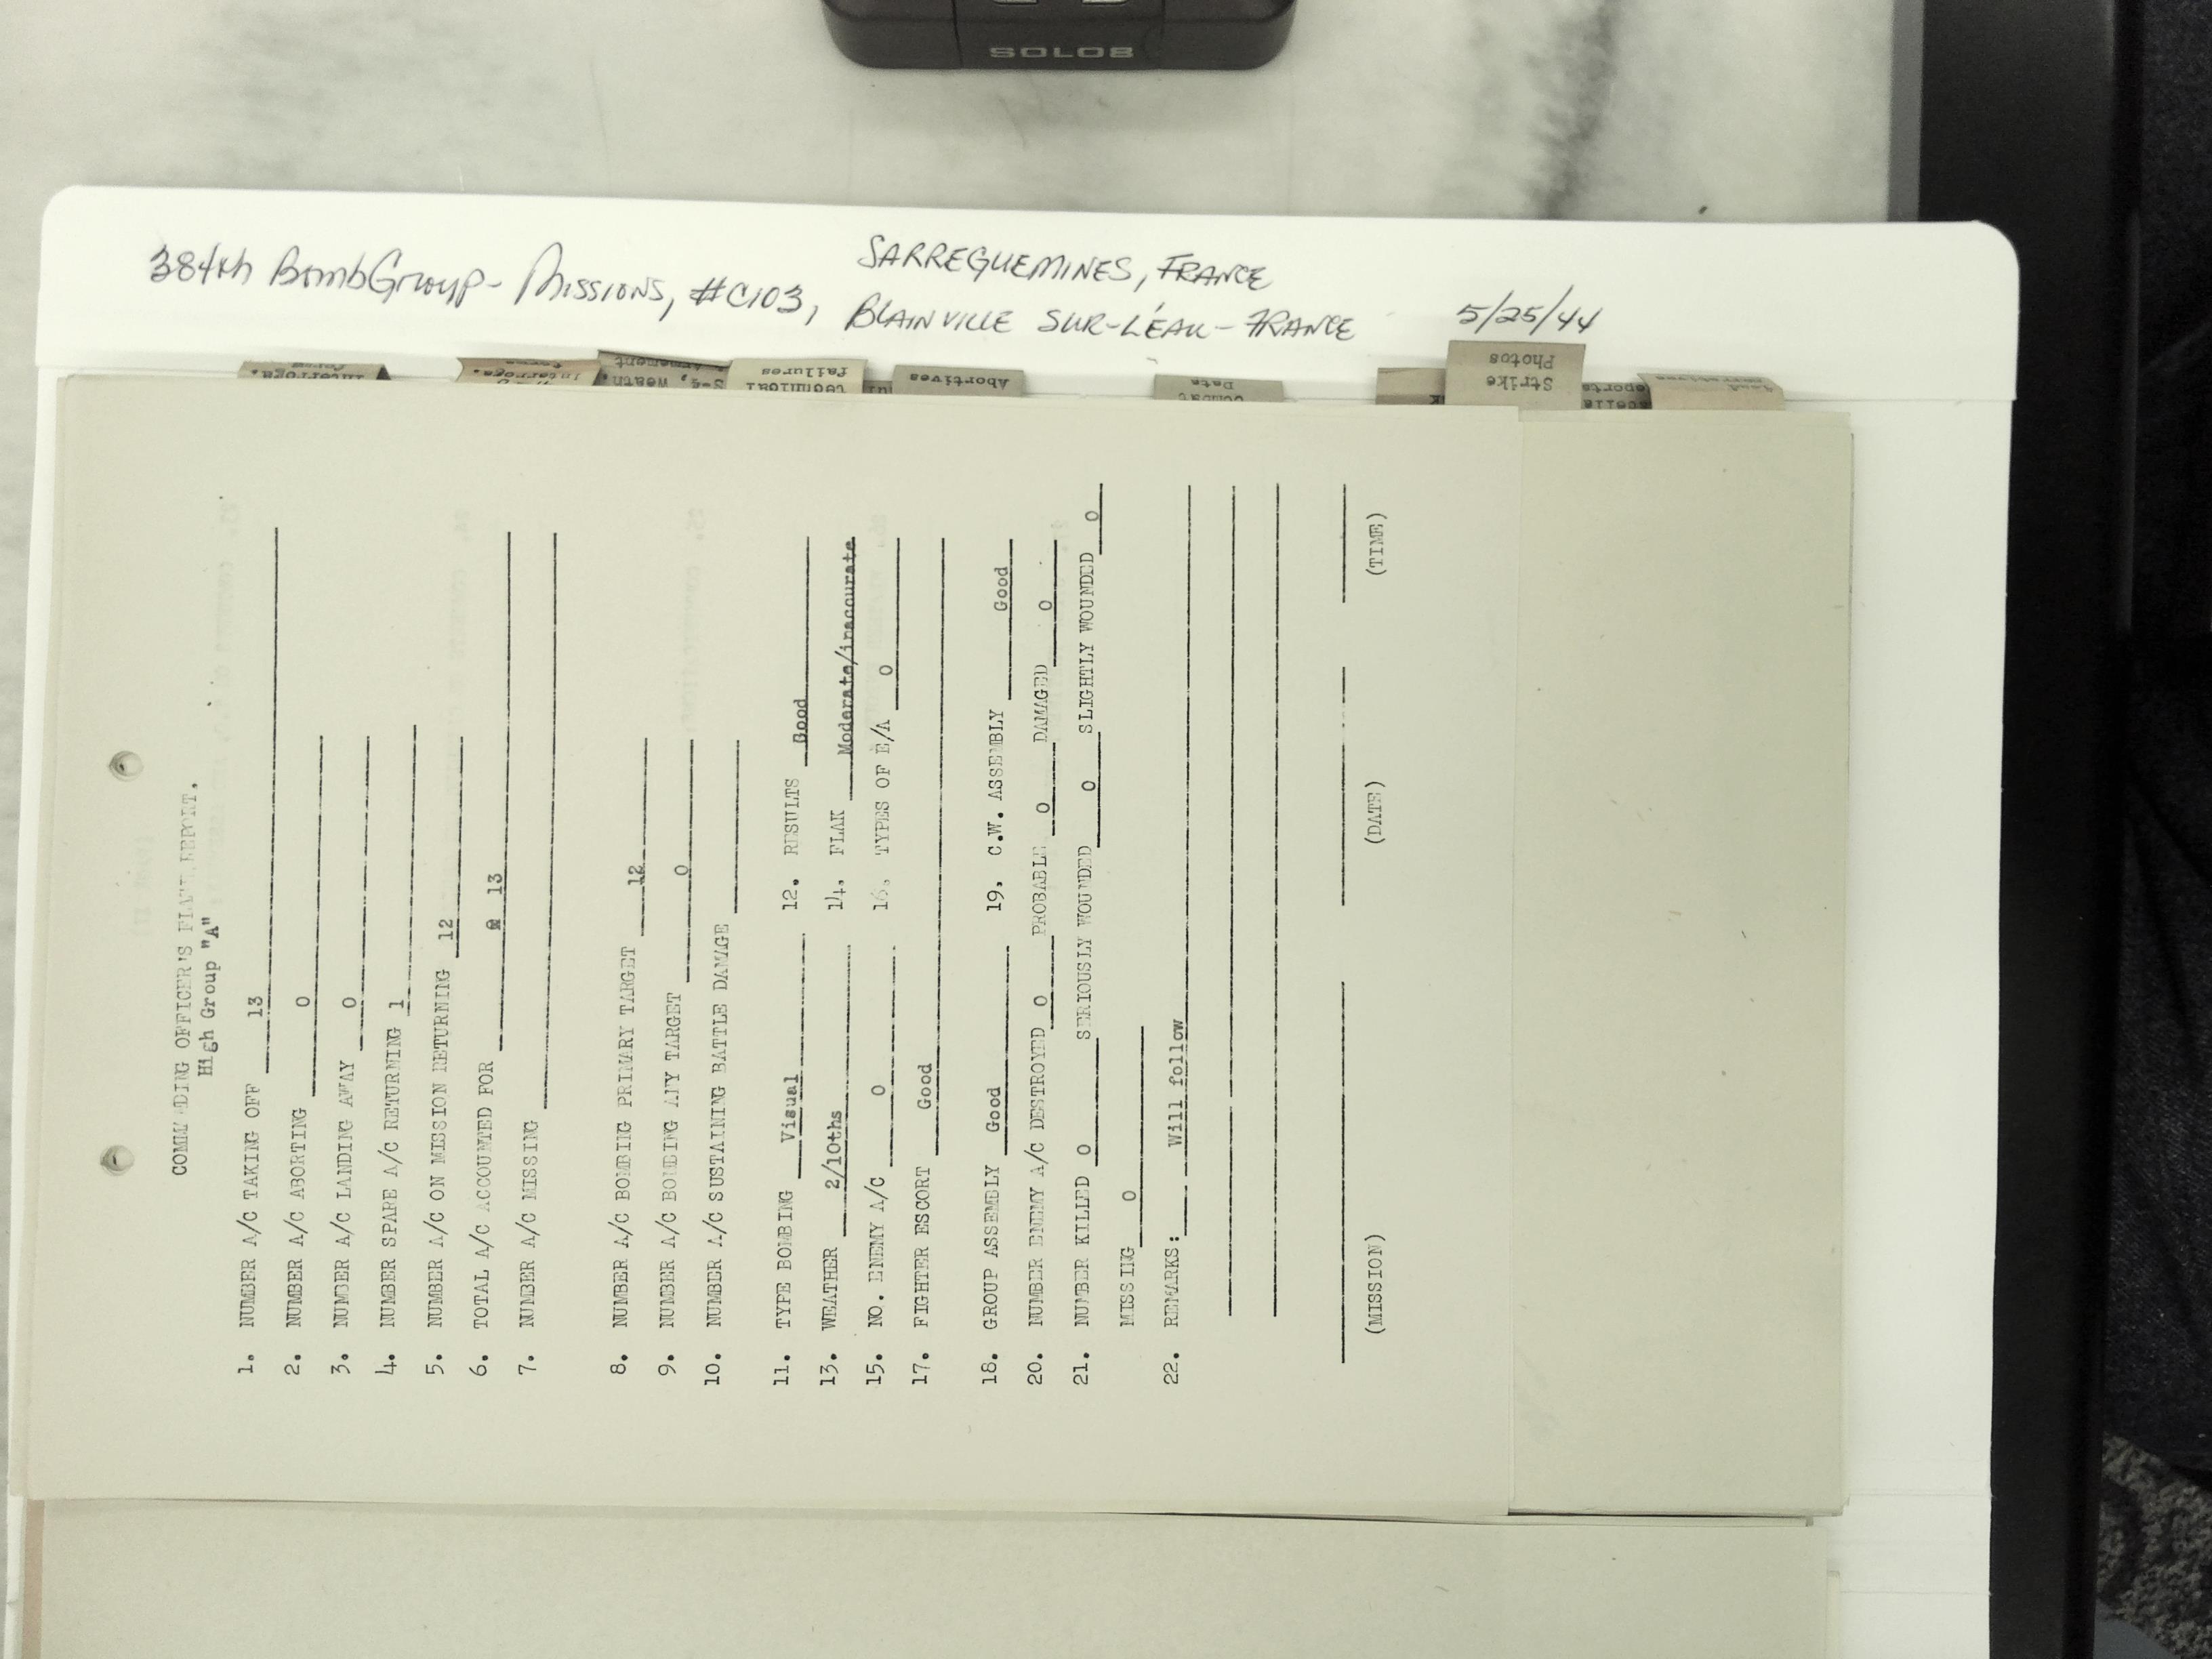 SOLO8
384th BombGroup - Missions, #C103,
SARREGUEMINES, FRANCE
BLAINVILLE SUR-L'ÉAU - FRANCE
5/25/44
Interroga.
Interroga.
Armament
S-2, Weath.
technical
failures
Abortives
Combat
Data
Strike
Photos
COMMANDING OFFICER'S FLASH REPORT.
High Group "A"
1. NUMBER A/C TAKING OFF 13
2. NUMBER A/C ABORTING 0
3. NUMBER A/C LANDING AWAY 0
4. NUMBER SPARE A/C RETURNING 1
5. NUMBER A/C ON MISSION RETURNING 12
6. TOTAL A/C ACCOUNTED FOR 13
7. NUMBER A/C MISSING
8. NUMBER A/C BOMBING PRIMARY TARGET 12
9. NUMBER A/C BOMBING ANY TARGET 0
10. NUMBER A/C SUSTAINING BATTLE DAMAGE
11. TYPE BOMBING Visual 12. RESULTS Good
13. WEATHER 2/10ths 14. FLAK Moderate/inaccurate
15. NO. ENEMY A/C 0 16. TYPES OF E/A 0
17. FIGHTER ESCORT Good
18. GROUP ASSEMBLY Good 19. C.W. ASSEMBLY Good
20. NUMBER ENEMY A/C DESTROYED 0 PROBABLE 0 DAMAGED 0
21. NUMBER KILLED 0 SERIOUSLY WOUNDED 0 SLIGHTLY WOUNDED 0
MISSING 0
22. REMARKS: Will follow
(MISSION) (DATE) (TIME)